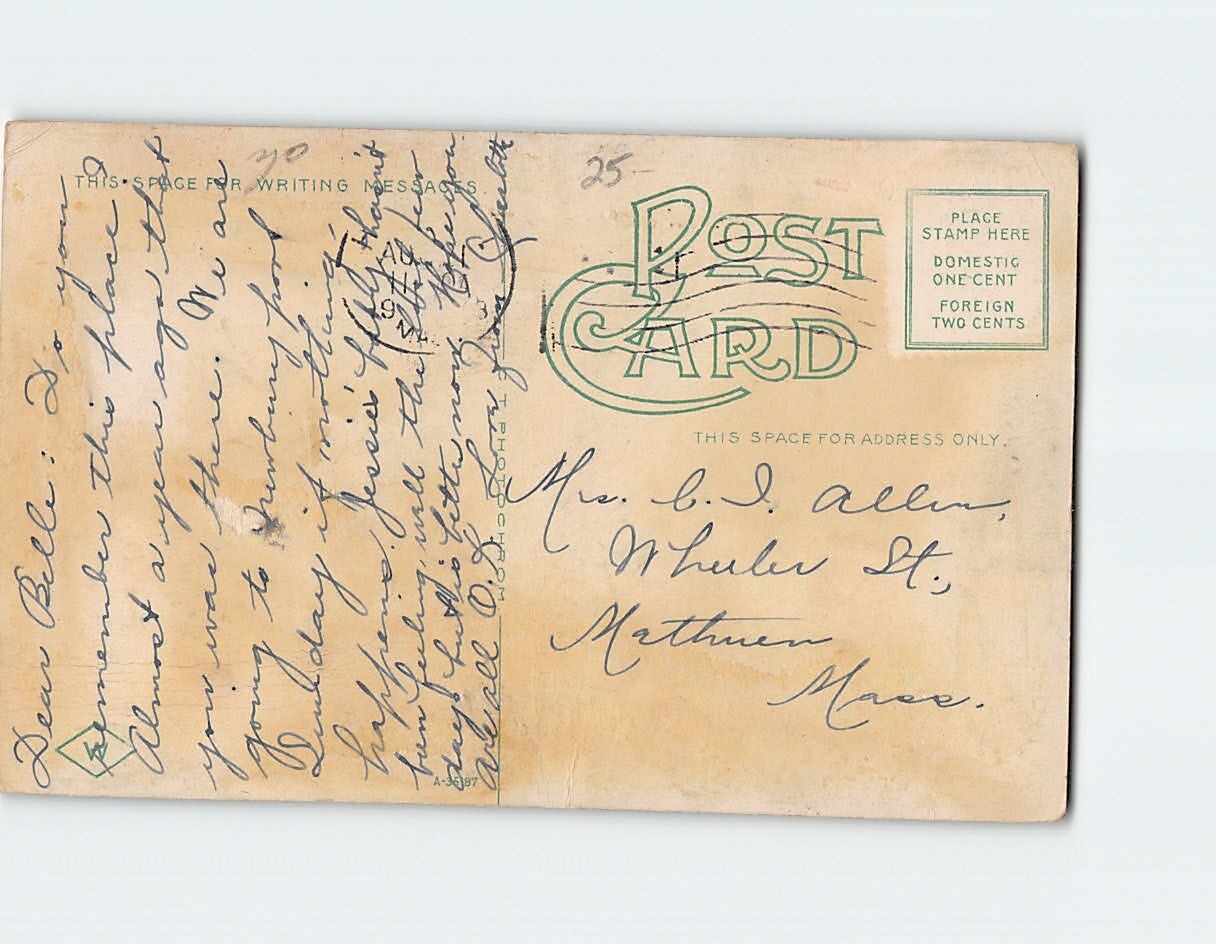 THIS SPACE FOR WRITING MESSAGES.
Dear Belle: Do you
remember this place?
Almost a year ago that
you was there. We are
going to Newbury port
Sunday if nothing
happens. Jessie's folks haint
been feeling well the last few
days but is better now. Hope you
are all O.K. Love from
A-35187
PHOTOCHROM
25-
POST
CARD
PLACE
STAMP HERE
DOMESTIC
ONE CENT
FOREIGN
TWO CENTS
THIS SPACE FOR ADDRESS ONLY.
Mrs. C. I. Allen,
Wheeler St.,
Methuen
Mass.